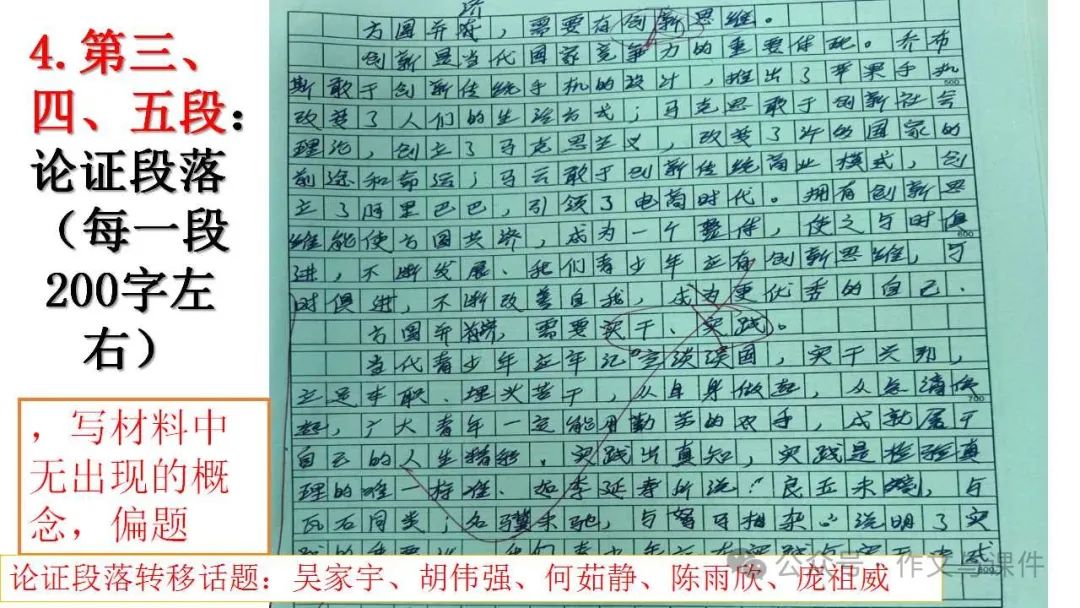 4.第三、
四、五段：
论证段落
（每一段
200字左
右）
，写材料中
无出现的概
念，偏题
济
方圆并存，需要有创新思维。
创新是当代国家竞争力的重要体现。乔布
斯敢于创新传统手机的设计，推出了苹果手机
500
改变了人们的生活方式；马克思敢于创新社会
理论，创立了马克思主义，改变了许多国家的
前途和命运；马云敢于创新传统商业模式，创
立了阿里巴巴，引领了电商时代。拥有创新思
维能使方圆共济，成为一个整体，使之与时俱
600
进，不断发展、我们青少年应有创新思维，与
时俱进，不断改善自我，成为更优秀的自己．
方圆并济，需要实干、实践。
当代青少年应牢记"空谈误国，实干兴邦，
立足本职、埋头苦干，从自身做起，从点滴做
700
起，广大青年一定能用勤劳的双手，成就属于
自己的人生精彩．实践出真知，实践是检验真
理的唯一标准．如李延寿所说："良玉未剖，与
瓦石同类；名骥未驰，与驽马相杂"说明了实
800
公众号·作文与课件
论证段落转移话题：吴家宇、胡伟强、何茹静、陈雨欣、庞祖威